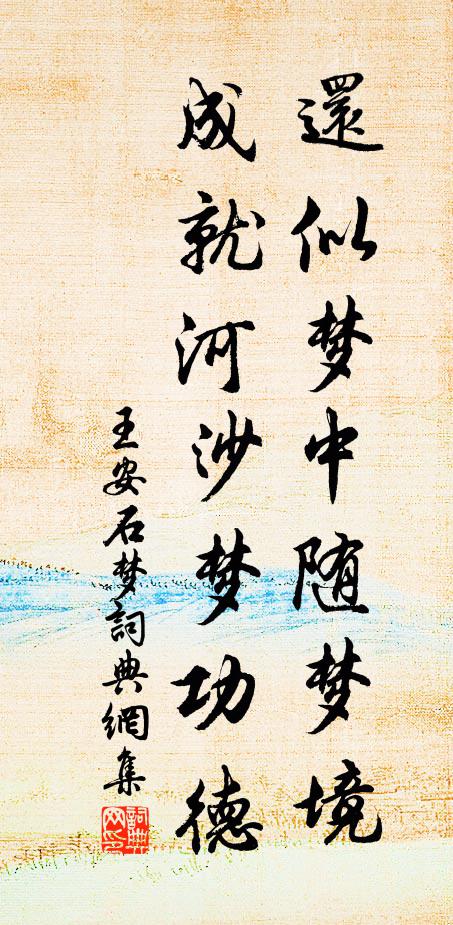 還似梦中随梦境
成就河沙梦功德
王安石梦詞典網集
詞典网印